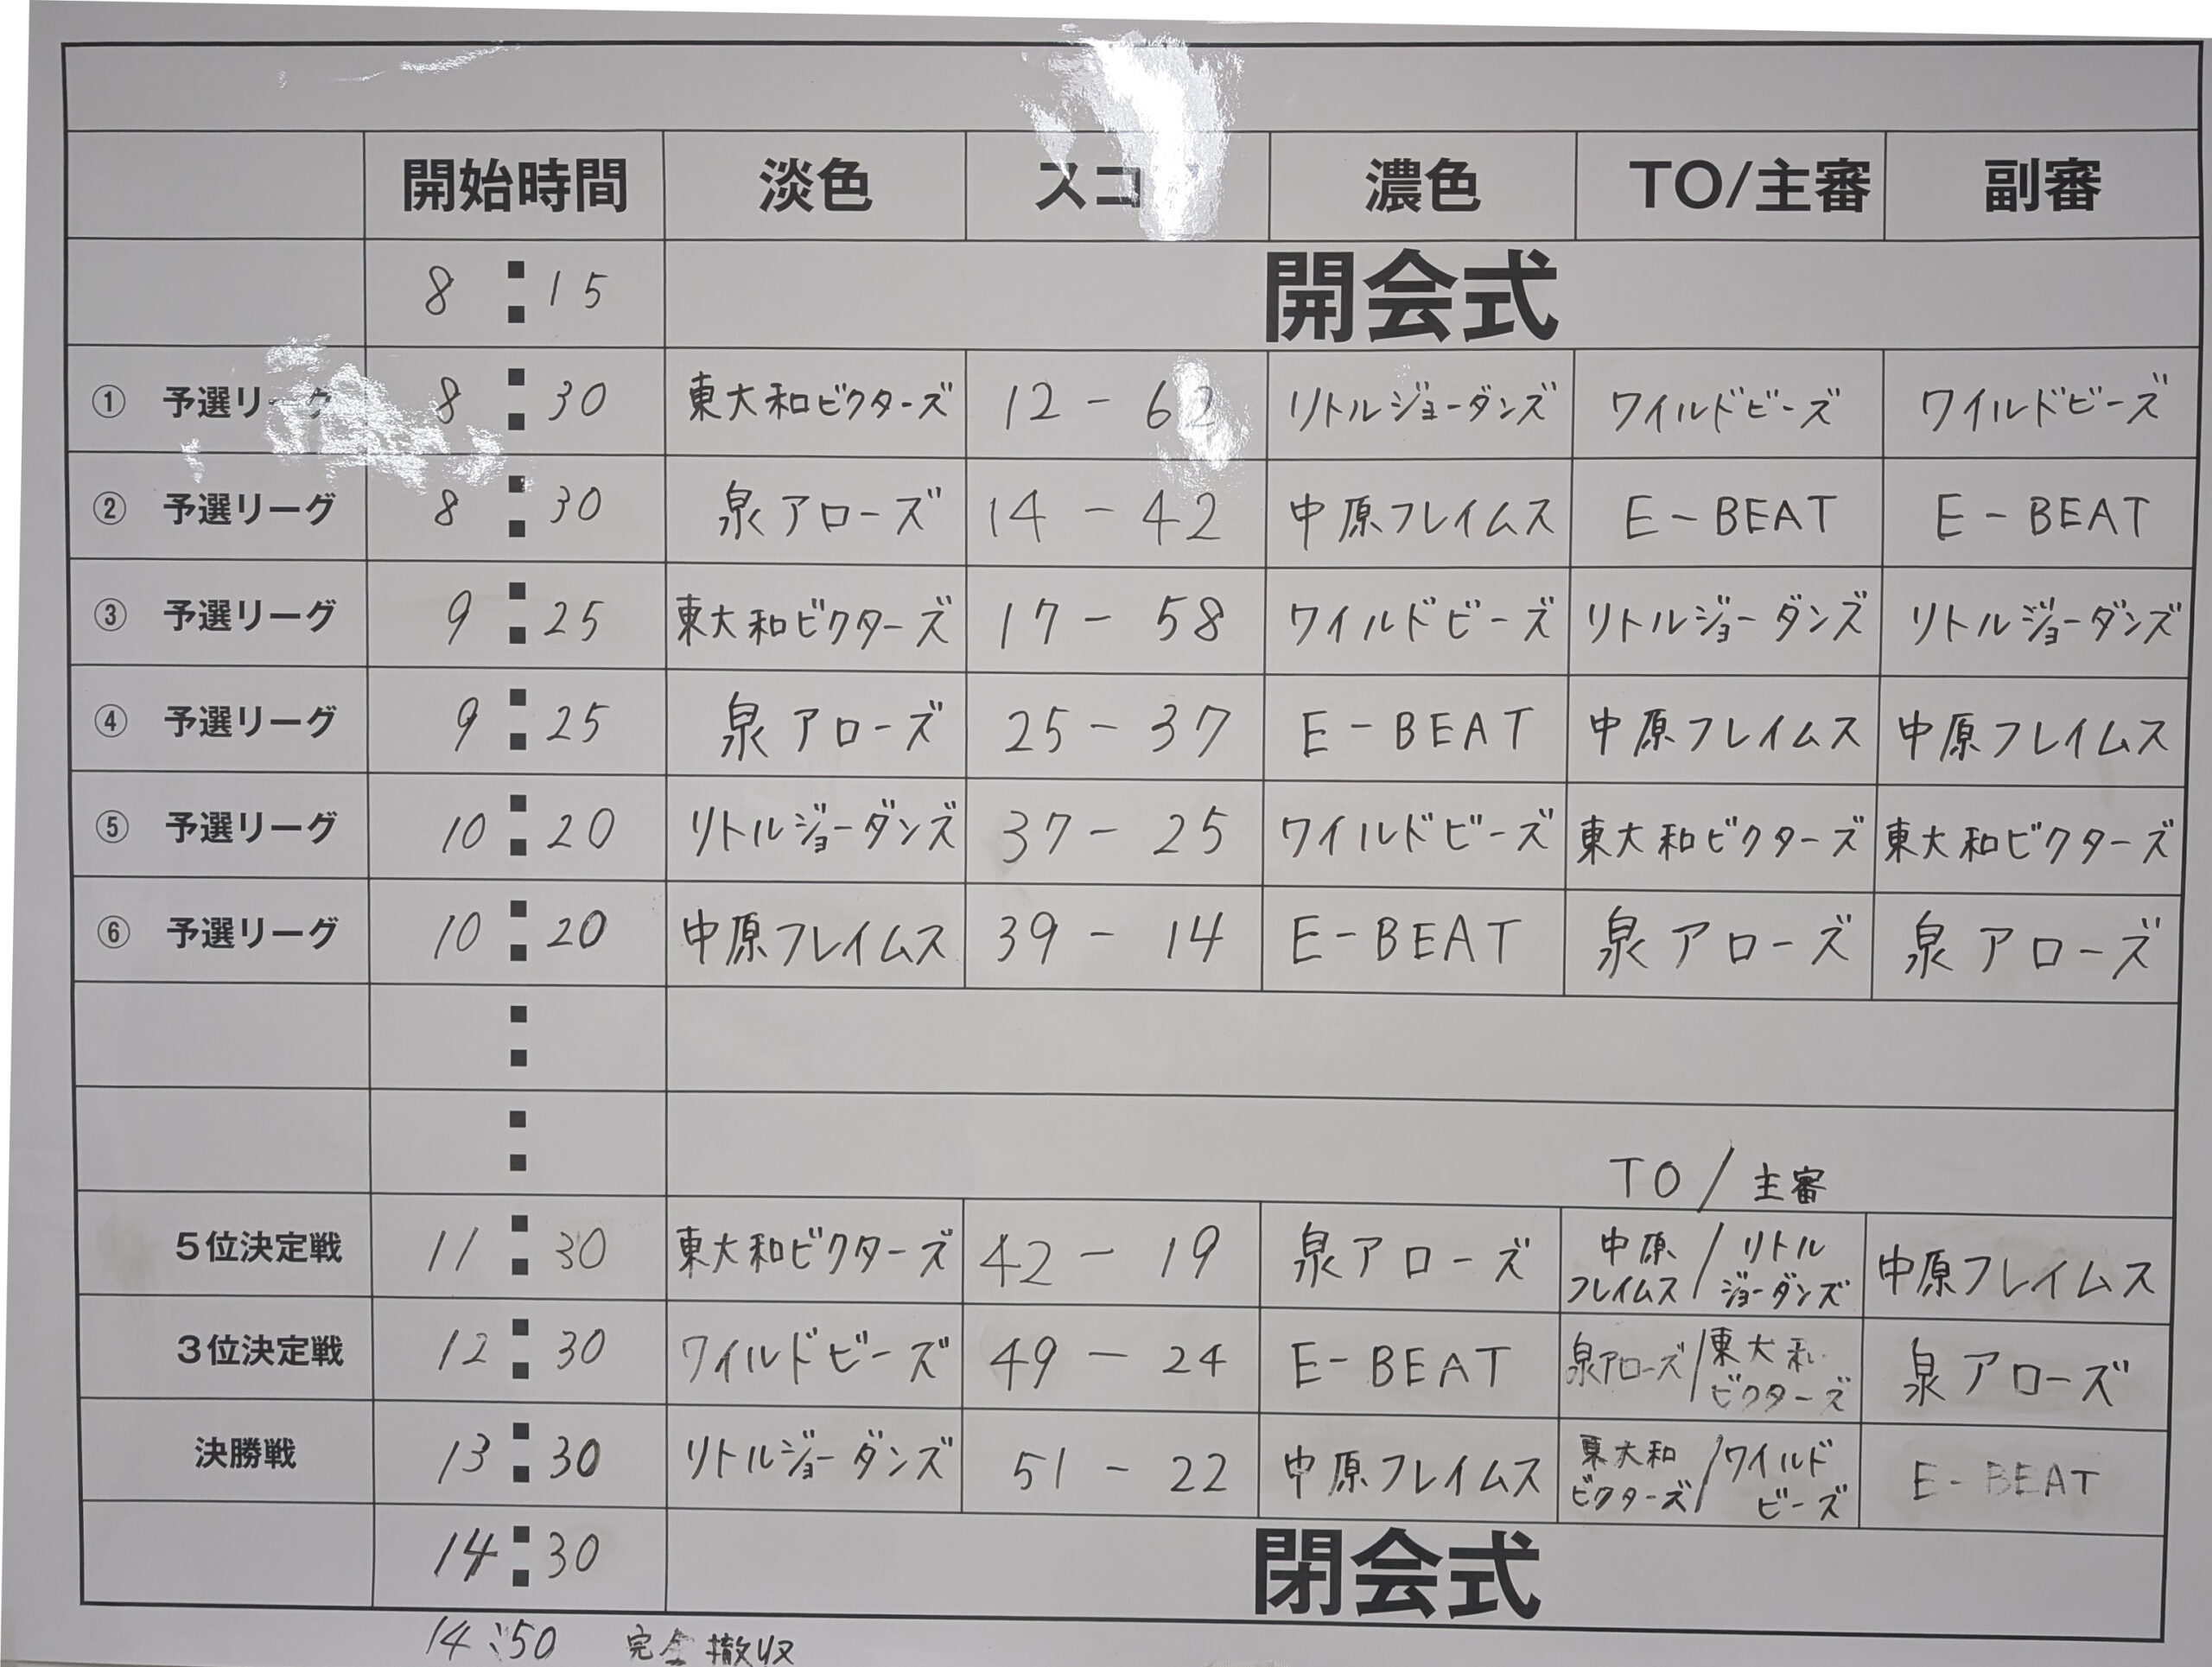 開始時間 淡色 スコ 濃色 TO/主審 副審
8:15 開会式
① 予選リーグ 8:30 東大和ビクターズ 12 - 62 リトルジョーダンズ ワイルドビーズ ワイルドビーズ
② 予選リーグ 8:30 泉アローズ 14 - 42 中原フレイムス E-BEAT E-BEAT
③ 予選リーグ 9:25 東大和ビクターズ 17 - 58 ワイルドビーズ リトルジョーダンズ リトルジョーダンズ
④ 予選リーグ 9:25 泉アローズ 25 - 37 E-BEAT 中原フレイムス 中原フレイムス
⑤ 予選リーグ 10:20 リトルジョーダンズ 37 - 25 ワイルドビーズ 東大和ビクターズ 東大和ビクターズ
⑥ 予選リーグ 10:20 中原フレイムス 39 - 14 E-BEAT 泉アローズ 泉アローズ
:
:
TO / 主審
5位決定戦 11:30 東大和ビクターズ 42 - 19 泉アローズ 中原フレイムス/リトルジョーダンズ 中原フレイムス
3位決定戦 12:30 ワイルドビーズ 49 - 24 E-BEAT 泉アローズ/東大和ビクターズ 泉アローズ
決勝戦 13:30 リトルジョーダンズ 51 - 22 中原フレイムス 東大和ビクターズ/ワイルドビーズ E-BEAT
14:30 閉会式
14:50 完全撤収